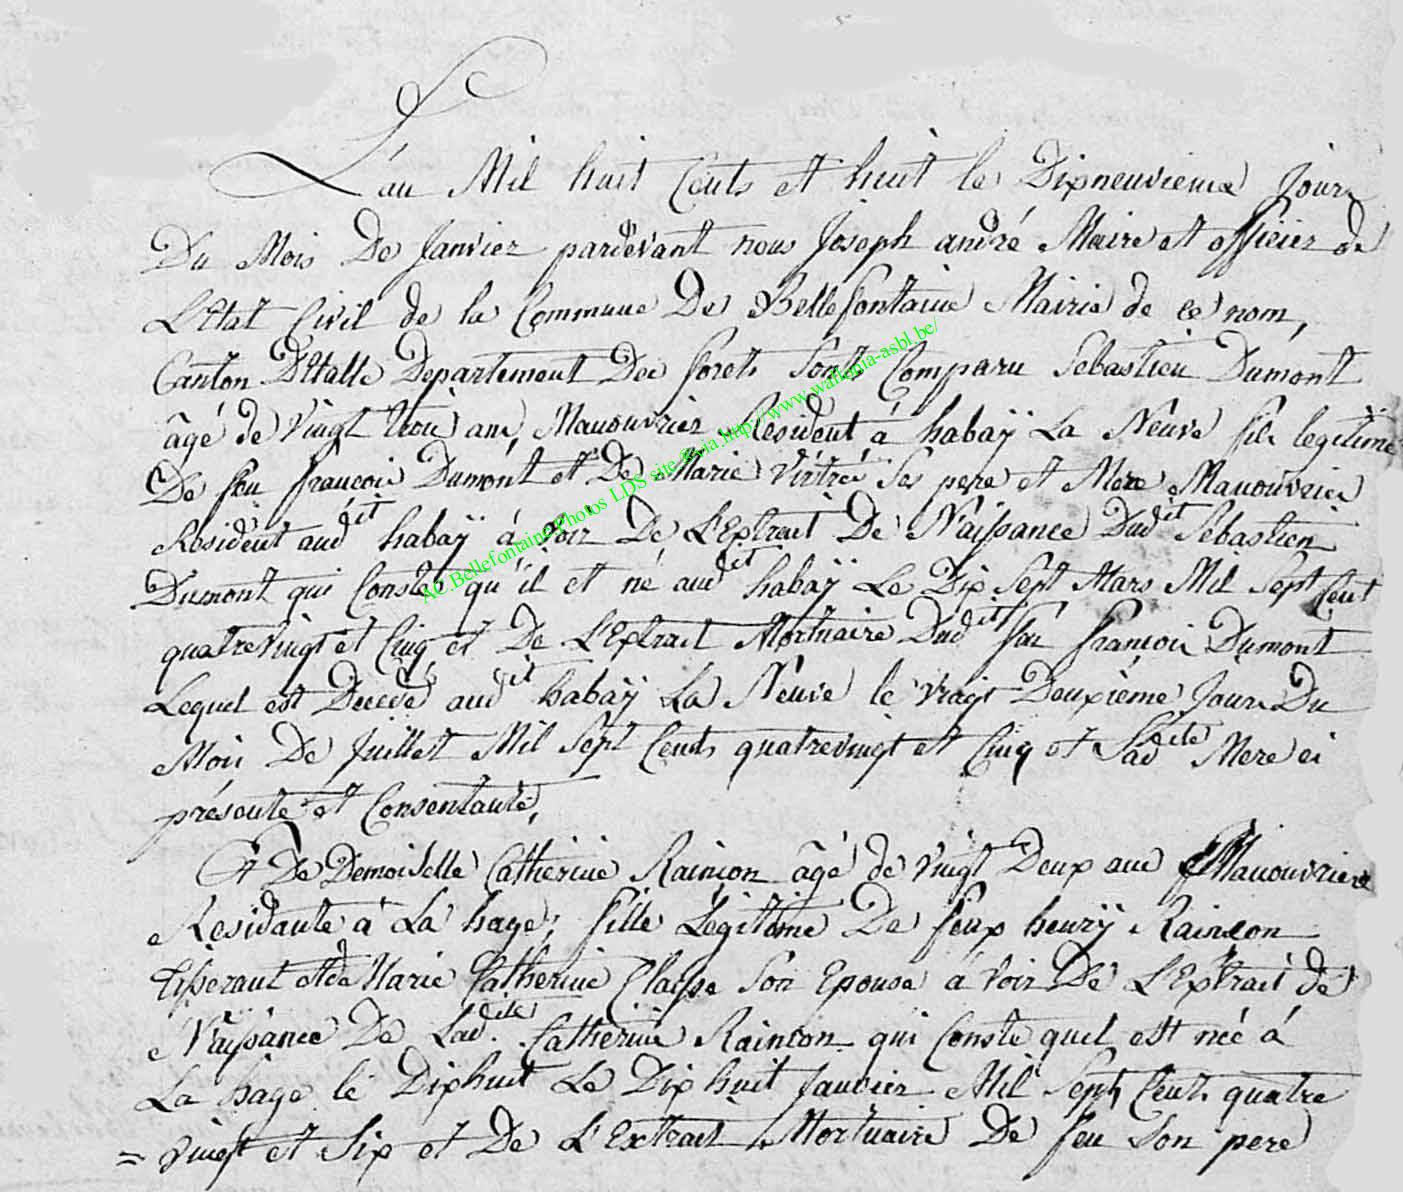 L'an Mil huit Cents et huit le Dixneuvieme Jour
Du Mois De Janvier pardevant nous Joseph andré Maire et officier de
L'Etat Civil de la Commune De Bellefontaine Mairie de ce nom,
Canton D'Etalle Departement Des forets Sont Comparu Sebastien Dumont
âgé de vingt trois ans, Manouvrier Resident á habaÿ La Neuve fils legitime
De feu francois Dumont et De Marie Virtrée Ses pere et Mere Manouvrier
Resident audit habaÿ á voir De L'Extrait De Naissance Dudit Sebastien
Dumont qui Conste qu'il et né audit habaÿ Le Dix Sept Mars Mil Sept Cent
quatrevingt et Cinq et De L'Extrait Mortuaire Dudit feu francois Dumont
Lequel est Decedé audit habaÿ La Neuve le vingt Deuxième Jour Du
Mois De Juillet Mil Sept Cents quatrevingt et Cinq et Sadite Mere ci
présente et Consentante,
Et De Demoiselle Catherine Rainson âgé de vingt Deux ans Manouvriere
Residante á La hage, fille Légitime De feux henrÿ Rainson
Tisserant et de Marie Catherine Classe Son Epouse á voir De L'Extrait de
Naissance De Ladite Catherine Rainson qui Conste quel est née á
La hage le Dixhuit Le Dix huit Janvier Mil Sept Cents quatre
= vingt et Six et De L'Extrait Mortuaire De feu Son pere
AC.Bellefontaine/Photos LDS site & via http://www.wallonia-asbl.be/